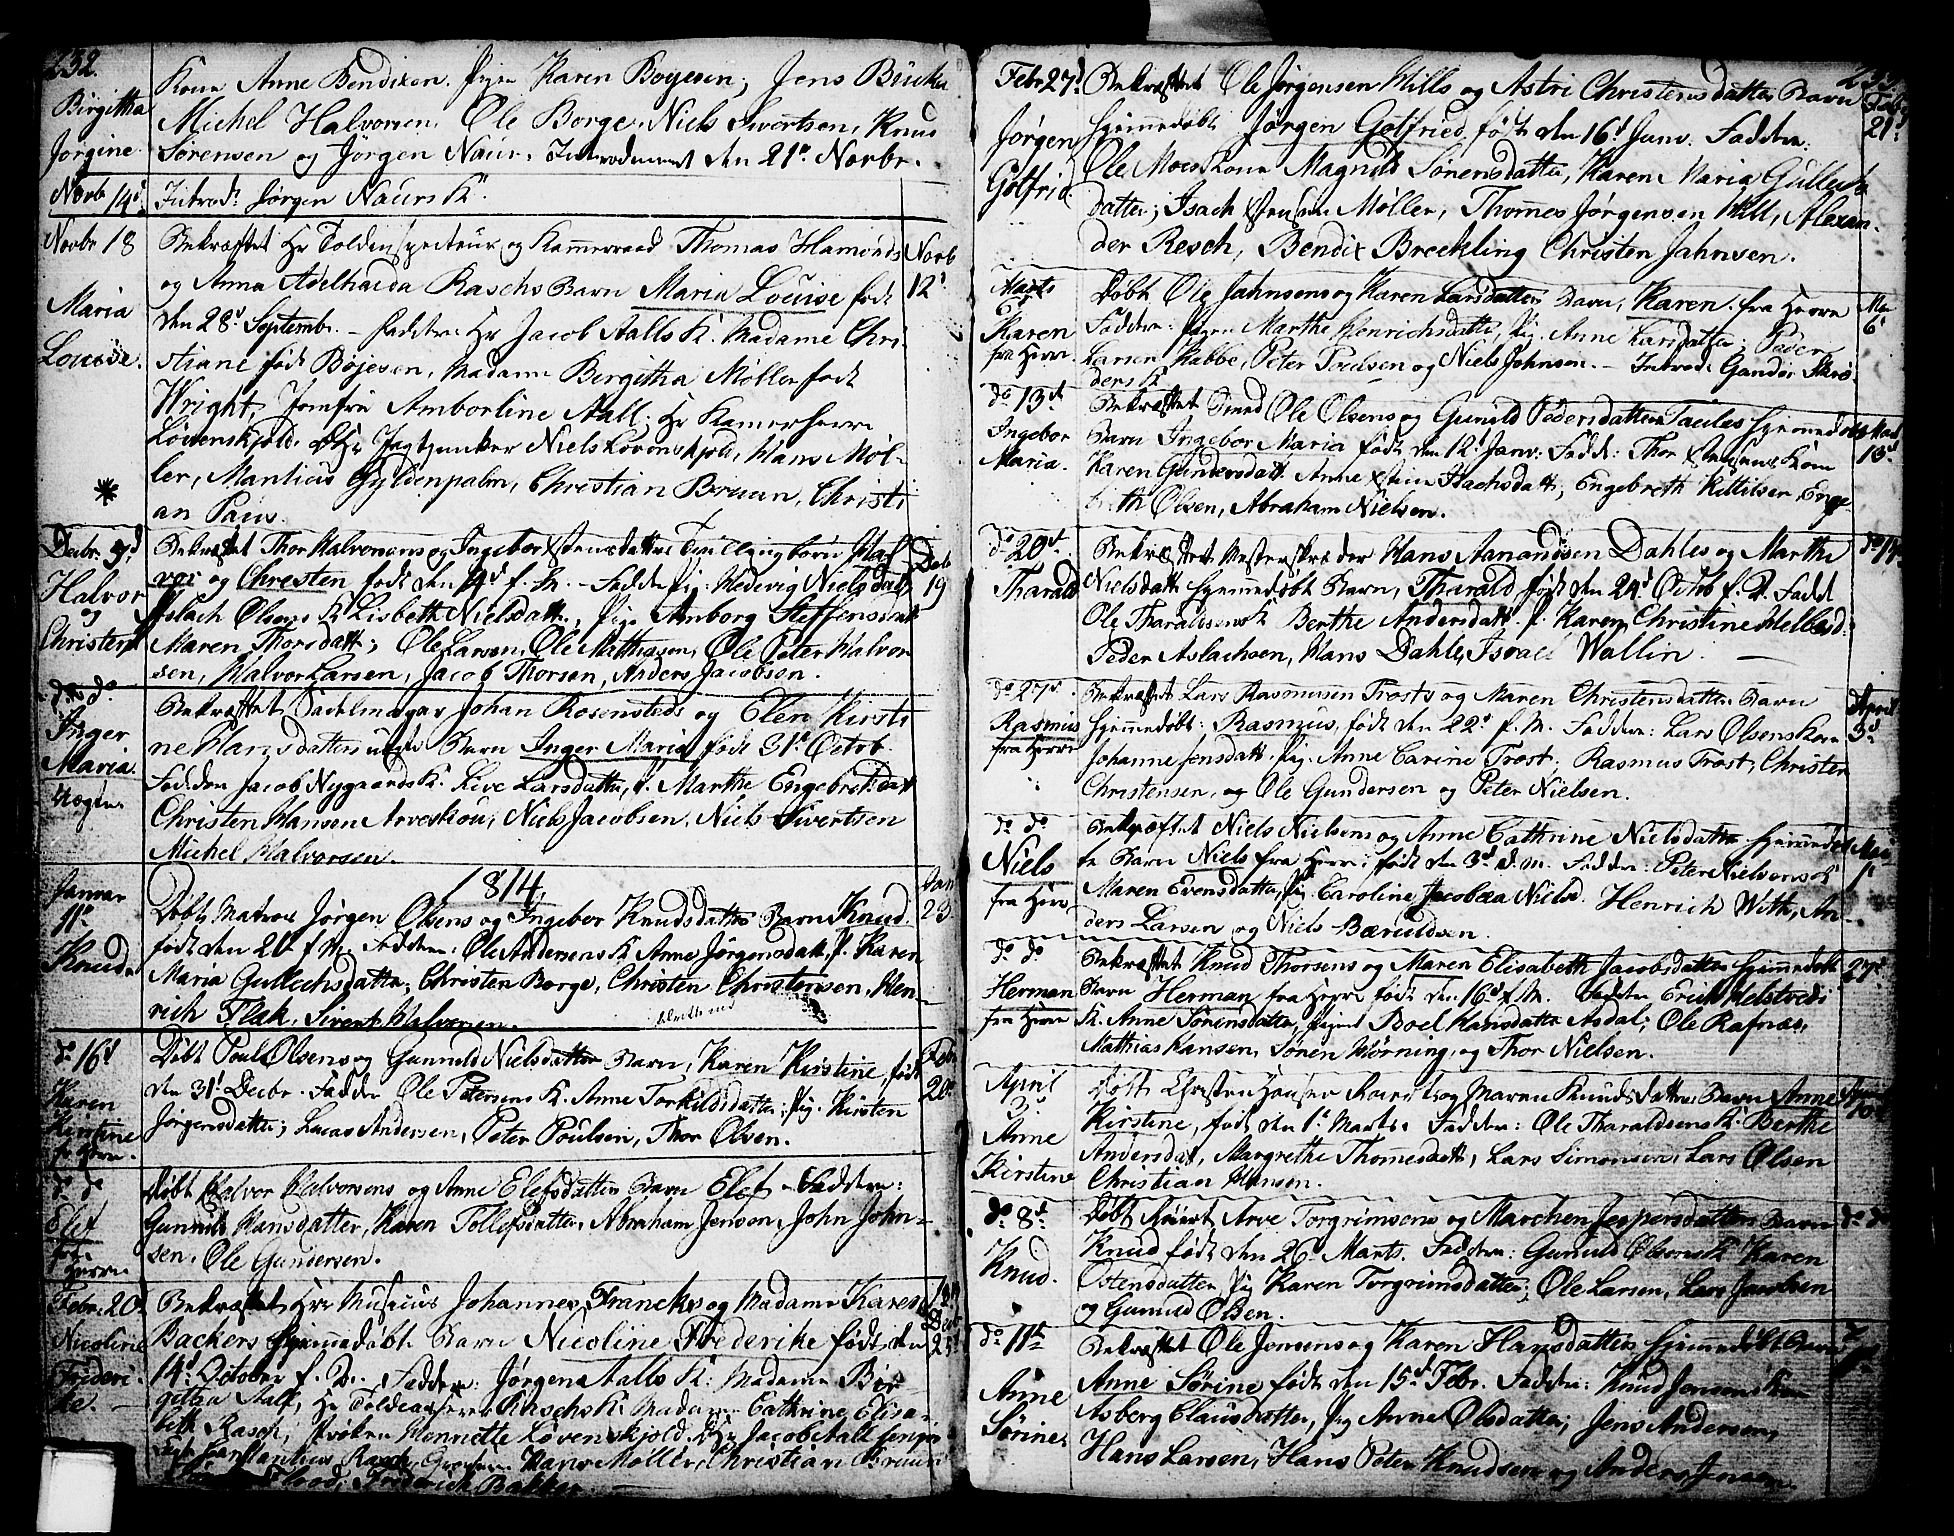 232.
Birgitha
Jorgine
Kone Anne Bendixen. Pigen Karen Boyesen; Jens
Michel Halvorsen, Ole Borge, Niels Sivertsen, Knud
Sørensen og Jørgen Naur. Introduceret den 21d Novbr.
Novb 14d Introd: Jørgen Naurs K.
Novbr 18
Maria
Louise.
Novb
12d
Bekræftet Hr Toldinspecteur og Kammerraad Thomas Hamonds
og Anna Adelhaida Raschs Barn Maria Louise født
den 28d Septembr. – Faddere: Hr Jacob Aalls K. Madame Chri
stiane født Bøjesen, Madame Birgitha Møller født
Wright, Jomfru Amborline Aall; Hr Kamerherre
Løvenskjold, Hr Jagtjunker Niels Løvenskjold, Hans Møl-
ler, Mantius Gyldenpalm, Christian Bruun, Christi
an Paus.
Decbr. 9d
Halvor
og
Christen
Decb
19
Bekræftet Thor Halvorsens og Ingebor Tvillingbørn Hal
vor og Christen født den 4d f. M. – Fadd: Pig: Hedevig Nielsdatt
Aslach Olsens K Lisbeth Nielsdatt., Pig. Amborg Steffensdatt
Maren Thorsdatt; Ole Larsen, Ole Mathiasen, Ole Peter Halvor
sen, Halvor Larsen, Jacob Thorsen, Anders Jacobsen.
do do
Inger
Maria.
Bekræftet Sadelmager Johan Rosensteds og Elen Kirsti
ne Hansdatters Barn Inger Maria født 31d Octob.
Faddere Jacob Nygaards K. Live Larsdatter, P. Marthe Engebretsdatt
Christen Hansen Arveskou, Niels Jacobsen, Niels Sivertsen
Michel Halvorsen.
1814.
Januar
11d
Knud
Jan
23
Døbt Matros Jørgen Olsens og Ingebor Knudsdatters Barn Knud.
født den 21 f. M. Faddere: Ole Andersens K Anne Jørgensdatt, P. Karen
Maria Gullechsdatter, Christen Borge, Christen Christensen, Hen
rich Flak, Sivert Halvorsen.
do 16d
Karen
Kirstine
fr Herre.
Feb
20d
Døbt Poul Olsens og Gunnild Nielsdatters Barn, Karen Kirstine, født
den 31d Decbr. Faddere Ole Petersens K. Anne Torkildsdatter, Pig. Kirsten
Jørgensdatter; Lucas Andersen, Peter Poulsen, Thor Olsen.
do do
Elef
fra
Herre
Døbt Halvor Halvorsens og Anne Elefsdatters Barn Elef – Faddere:
Gunnild Hansdatter, Karen Tollefsdatter, Abraham Jensen, John John-
sen, Ole Gundersen.
Febr. 20d
Nicoline
Frideri-
ke. –
Bekræftet Hr Musicus Johannes Francks og Madame Karen
Backers hjemmedøbt Barn Nicoline Frederike født den
14d October f. A. Faddere: Jørgen Aalls K: Madame Bir-
githa Aall, Hr Raschs K. Madame Cathrine Elisa-
beth Rasch, Frøken Henriette Løvenskjold, Hr Jacob Aall junior
Mantius Rasch, Hans Møller, Christian Bruun
Flood, Friderich Bakker. –
Febr 27d
Jørgen
Gotfried
Feb
21d
Bekræftet Ole Jørgensen Mills og Astri Christensdatters Barn
hjemmedøbt Jørgen Gotfried, født den 16d Janv. Faddere:
Ole Moes Kone Magnild Sørensdatter, Karen Maria Gullechs
datter; Isach Møller, Thomes Jørgensen Mill, Alexan-
der Resch, Bendix Breckling Christen Jahnsen.
Marts
6d
Karen
fra Herre.
Mar
6d
Døbt Ole Jahnsens og Karen Larsdatters Barn, Karen. fra Herre
Faddere: Pigen Marthe Henrichsdatter, Pig. Anne Larsdatter; Peder
Larsen Kabbe, Peter Poulsen og Niels Johnsen. – Introd: Gandør Skrø-
ders K
do 13d
Ingebor
Maria.
13d
Bekræftet Smed Ole Olsens og Gunild Pedersdatter hjemmedøbt
Barn Ingebor Maria født den 12d Janv: Fadd: Thor Kone
Karen Gundersdatt. Anne Isachsdatt; Engebreth Kittilsen, Enge
brith Olsen, Abraham Nielsen.
do 20d
Tharald
do
Bekræftet Mester Skræder Hans Aanondsen Dahles og Marthe
Nielsdatt hjemmedøbt Barn, Tharald født den 24d Octob f. A. Fadd
Ole Tharaldsens K Berthe Andersdatt. P. Karen Christine Melbøed:
Peder Aslachsen, Hans Dahle, Israel Wallin. –
do 27d
Rasmus
fra Herre
April
3d
Bekræftet Lars Rasmusen Trosts og Maren Christensdatters Barn
hjemmedøbt, Rasmus, født den 22d f. M. Faddere: Lars Olsens Kone
Johanne Jensdatt. Pig. Anne Carine Trost. Rasmus Trost, Christen
Christensen, og Ole Gundersen og Peter Nielsen.
do do
Niels
fra Herre
Mai
1d
Bekræftet Niels Nielsens og Anne Cathrine Nielsdatter hjemmedøb
te Barn Niels fra Herre; født den 3d d. M. Faddere: Peter Nielsens K
Maren Evensdatter, Pig Caroline Jacobæa Nielsd. Henrich With, An-
ders Larsen og Niels Bærulsen.
do do
Herman
fra Herre
27d
Bekræftet Knud Thorsens og Maren Elisabeth Jacobsdatters hjemmedøbte
Barn Herman fra Herre født den 16d f. M. Faddere Erich Helstvedts
K. Anne Sørensdatter, Pigen Boel Hansdatter Asdal; Ole Rafnæs,
Mathias Hansen, Søren Hørning, og Thor Nielsen.
April
3d
Anne
Kirstine
April
10d
Døbt Christen Hansen og Maren Knudsdatters Barn Anne
Kirstine, født den 1d Marts. Faddere: Ole Tharaldsens K. Berthe
Andersdat, Margrethe Thomesdatt, Lars Simonsen, Lars Olsen
Christian Hansen.
do 8d
Knud.
do do
Døbt Arve Torgrimsens og Marchen Jespersdatters Barn
Knud født den 26d Marts. Faddere: Gunild Olsens K Karen
Ostensdatter Pig Karen Torgrimsdatter; Ole Larsen, Lars Jacobsen
og Gunuld Olsen.
do 11d
Anne
Sørine
Bekræftet Ole Jensens og Karen Hansdatters hjemmedøbt Barn
Anne Sørine født den 15d Febr. Faddere: Knud Jensens Kone
Asberg Clausdatter, Pig Anne Olsdatter; Jens Andersen,
Hans Larsen, Hans Peter Knudsen og Anders Jensen.